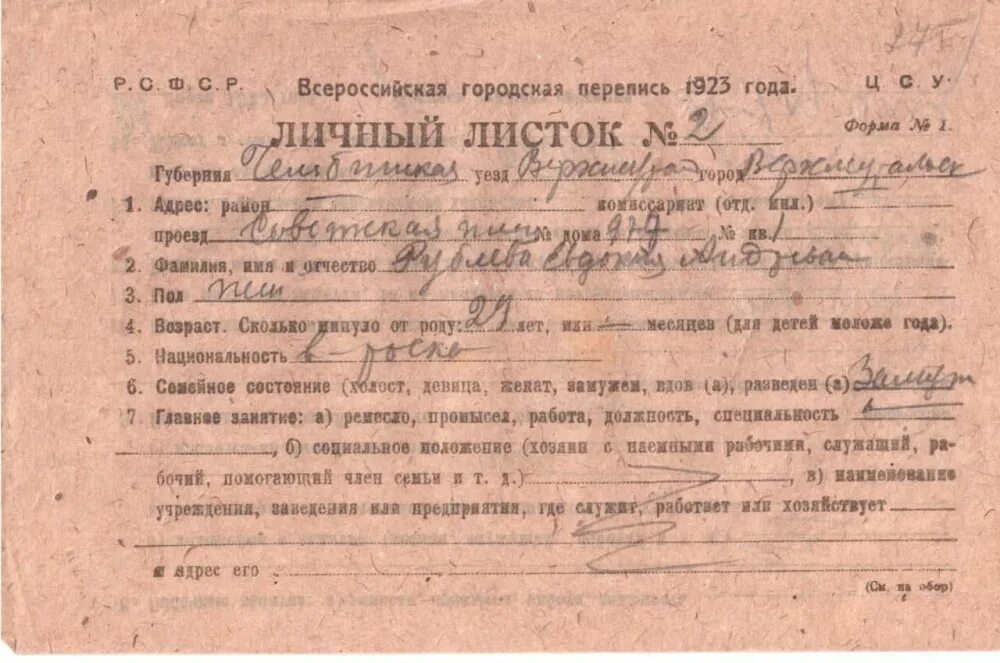 275
Р.С.Ф.С.Р. Всероссийская городская перепись 1923 года. Ц С У
ЛИЧНЫЙ ЛИСТОК № 2 Форма № 1.
Губерния Челябинская уезд Верхнеурал город Верхнеуральск
1. Адрес: район комиссариат (отд. мил.)
проезд Советская № дома № кв. 1
2. Фамилия, имя и отчество Рублева Евдокия Андреевна
3. Пол жен
4. Возраст. Сколько минуло от роду: 29 лет, или — месяцев (для детей моложе года).
5. Национальность в-роска
6. Семейное состояние (холост, девица, женат, замужем, вдов (а), разведен (а) Замуж
7. Главное занятие: а) ремесло, промысел, работа, должность, специальность
, б) социальное положение (хозяин с наемными рабочими, служащий, ра-
бочий, помогающий член семьи и т. д.) , в) наименование
учреждения, заведения или предприятия, где служит, работает или хозяйствует
и адрес его
(См. на обор)